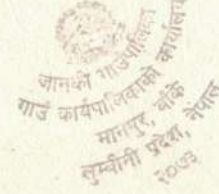 जानकी गाउँपालिका
गाउँ कार्यपालिकाको कार्यालय
मानपुर, बाँके
लुम्बीनी प्रदेश, नेपाल
२०७३